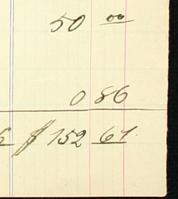 50 00
0 86
$ 152 61